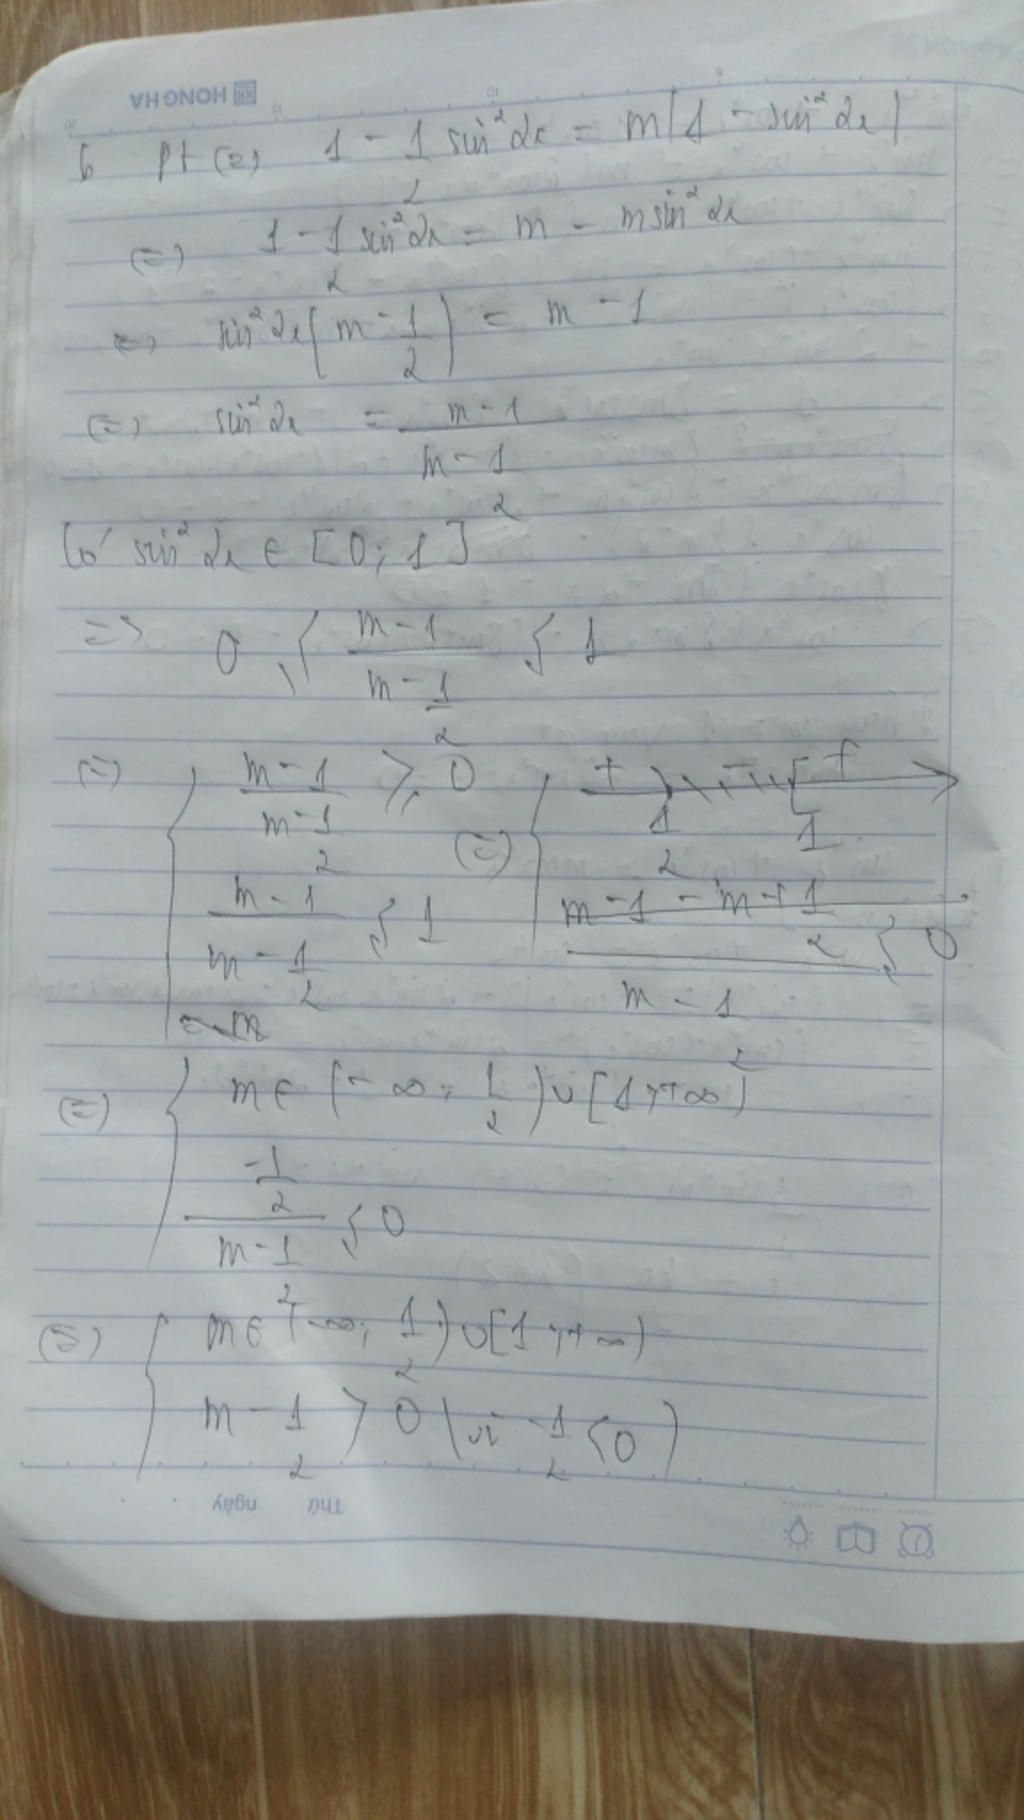 HONG HA
b pt (=) 1 - 1/2 sin²2x = m(1 - sin²2x)
(=) 1 - 1/2 sin²2x = m - m sin²2x
(=) sin²2x(m - 1/2) = m - 1
(=) sin²2x = (m - 1)/(m - 1/2)
Có sin²2x ∈ [0; 1]
=> 0 ≤ (m - 1)/(m - 1/2) ≤ 1
(=) { (m - 1)/(m - 1/2) ≥ 0 (=) { + ) - [ + 1/2 1
(m - 1)/(m - 1/2) ≤ 1 (m - 1 - m + 1/2)/(m - 1/2) ≤ 0
(=) { m ∈ (-∞; 1/2) ∪ [1; +∞)
(-1/2)/(m - 1/2) ≤ 0
(=) { m ∈ (-∞; 1/2) ∪ [1; +∞)
m - 1/2 > 0 (vì -1/2 < 0)
Thứ ngày